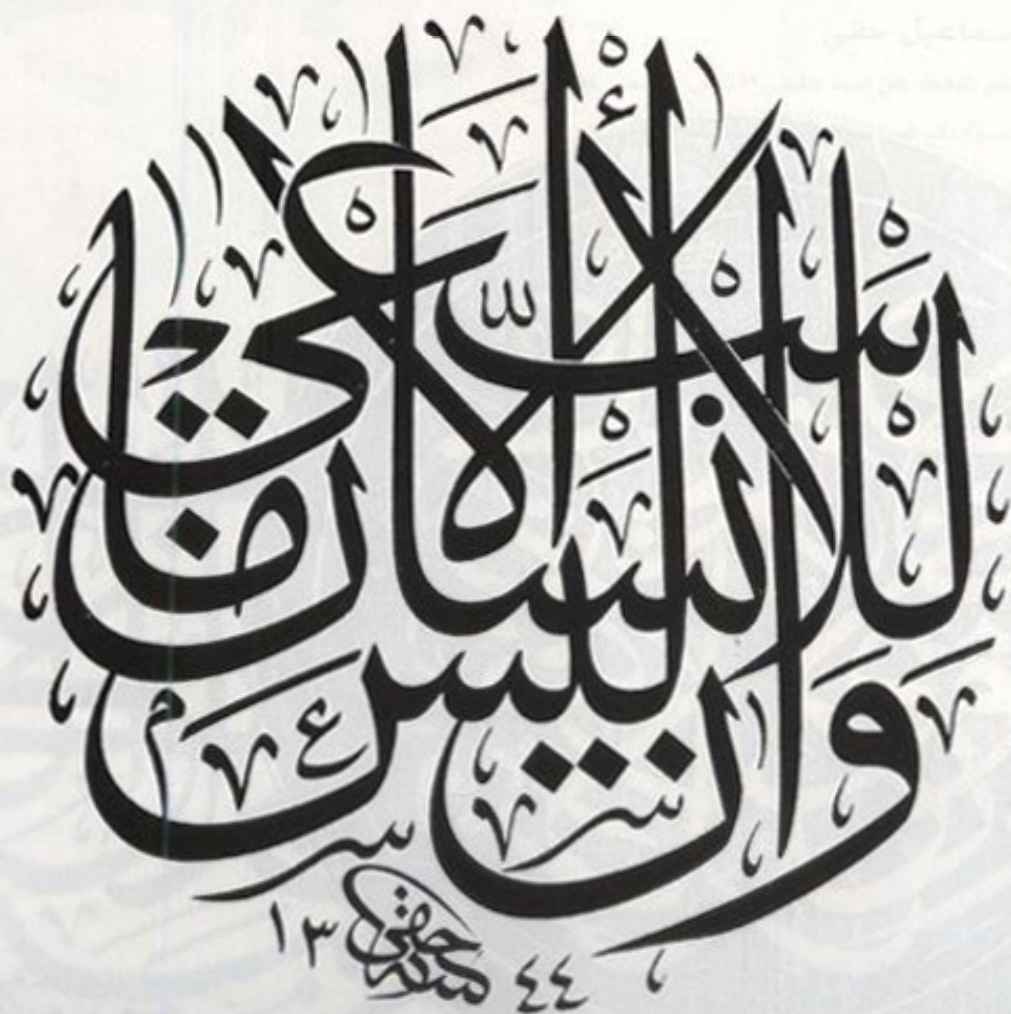 وَأَنْ لَيْسَ لِلْإِنْسَانِ إِلَّا مَا سَعَى
كتبه حقي ١٣٤٤